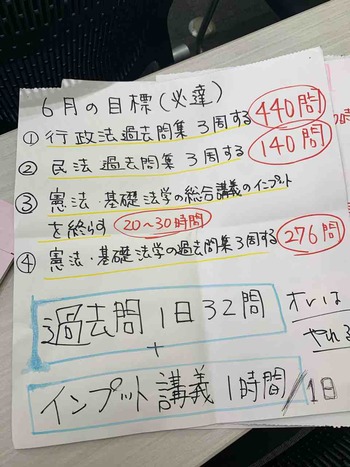 6月の目標(必達)
① 行政法過去問集 3周する 440問
② 民法 過去問集 3周する 140問
③ 憲法・基礎法学の総合講義のインプット
を終らす 20〜30時間
④ 憲法・基礎法学の過去問集3周する 276問
過去問1日32問
+
インプット講義1時間/1日
オレは
やれる